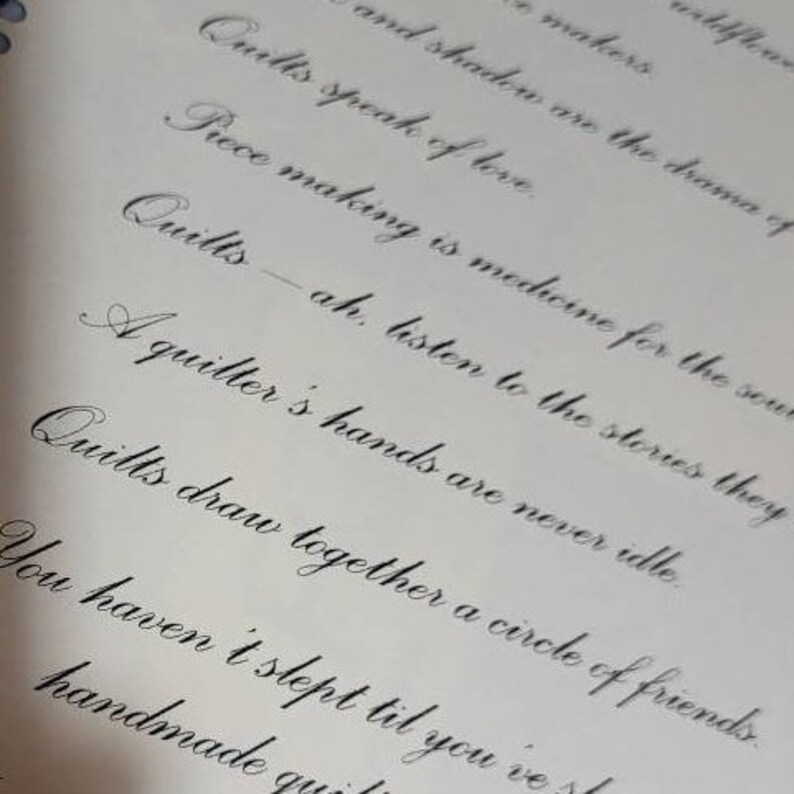 wildflowe
makers.
and shadow are the drama of
Quilts speak of love.
Piece making is medicine for the sou
Quilts — ah, listen to the stories they
A quilter's hands are never idle.
Quilts draw together a circle of friends.
You haven't slept til you've sl
handmade quil